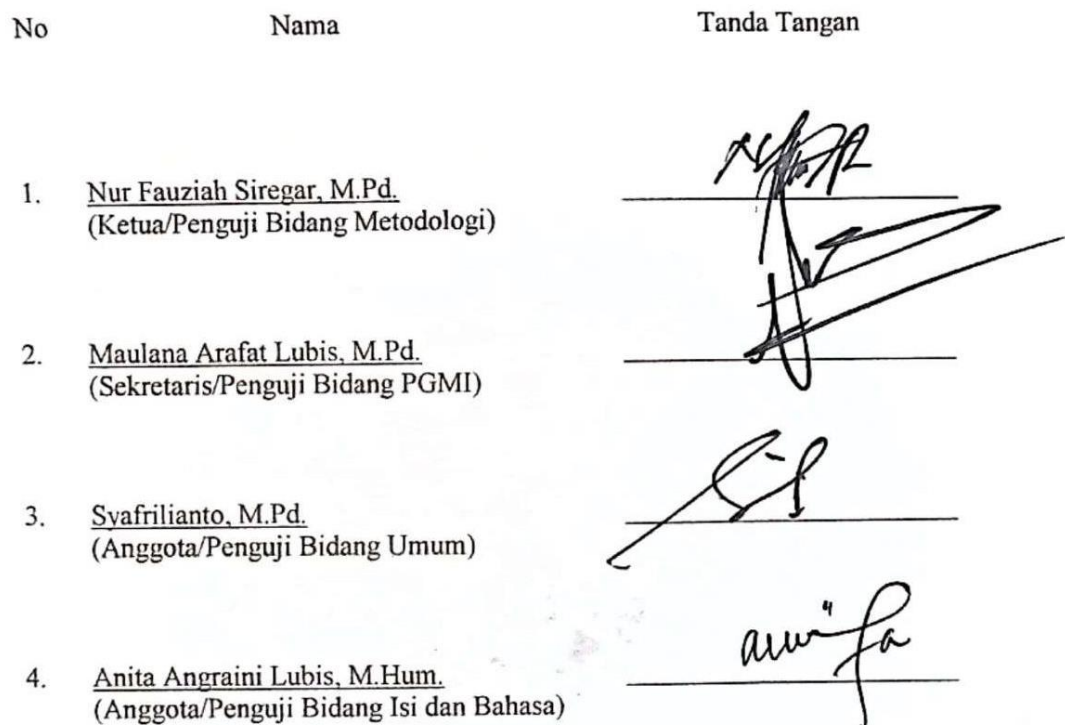 No Nama Tanda Tangan
1. Nur Fauziah Siregar, M.Pd.
(Ketua/Penguji Bidang Metodologi)
2. Maulana Arafat Lubis, M.Pd.
(Sekretaris/Penguji Bidang PGMI)
3. Syafrilianto, M.Pd.
(Anggota/Penguji Bidang Umum)
4. Anita Angraini Lubis, M.Hum.
(Anggota/Penguji Bidang Isi dan Bahasa)